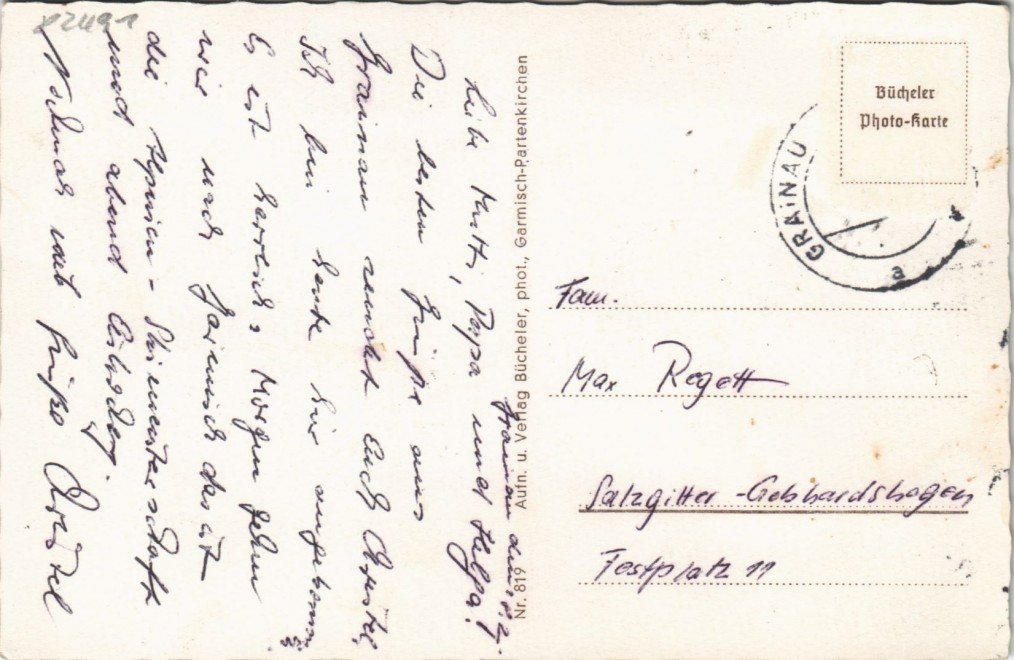 Grainau den 8.2.
Liebe Mutti, Papa und Helga!
Die besten Grüße aus
Grainau sendet Euch Christel
Ich bin heute hier angekommen
Es ist herrlich. Morgen gehen
wir nach Garmisch da ist
die Alpien-Skimeisterschaft
und abend
Nochmals viele Grüße Christel
Nr. 819 Aufn. u. Verlag Bücheler, phot., Garmisch-Partenkirchen
Bücheler
Photo-Karte
GRAINAU
a
Fam.
Max Regett
Salzgitter-Gebhardshagen
Festplatz 11